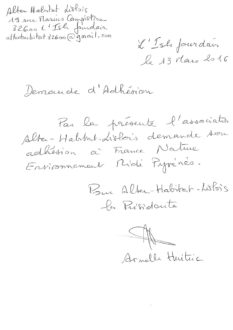 Alter Habitat Lislois
19 rue Marius Campistron
32600 L'Isle Jourdain
alterhabitat32600@gmail.com
L'Isle Jourdain
le 13 Mars 2016
Demande d'Adhésion
Par la présente l'association
Alter-Habitat-Lislois demande son
adhésion à France Nature
Environnement Midi Pyrénées.
Pour Alter-Habitat-Lislois
La Présidente
Armelle